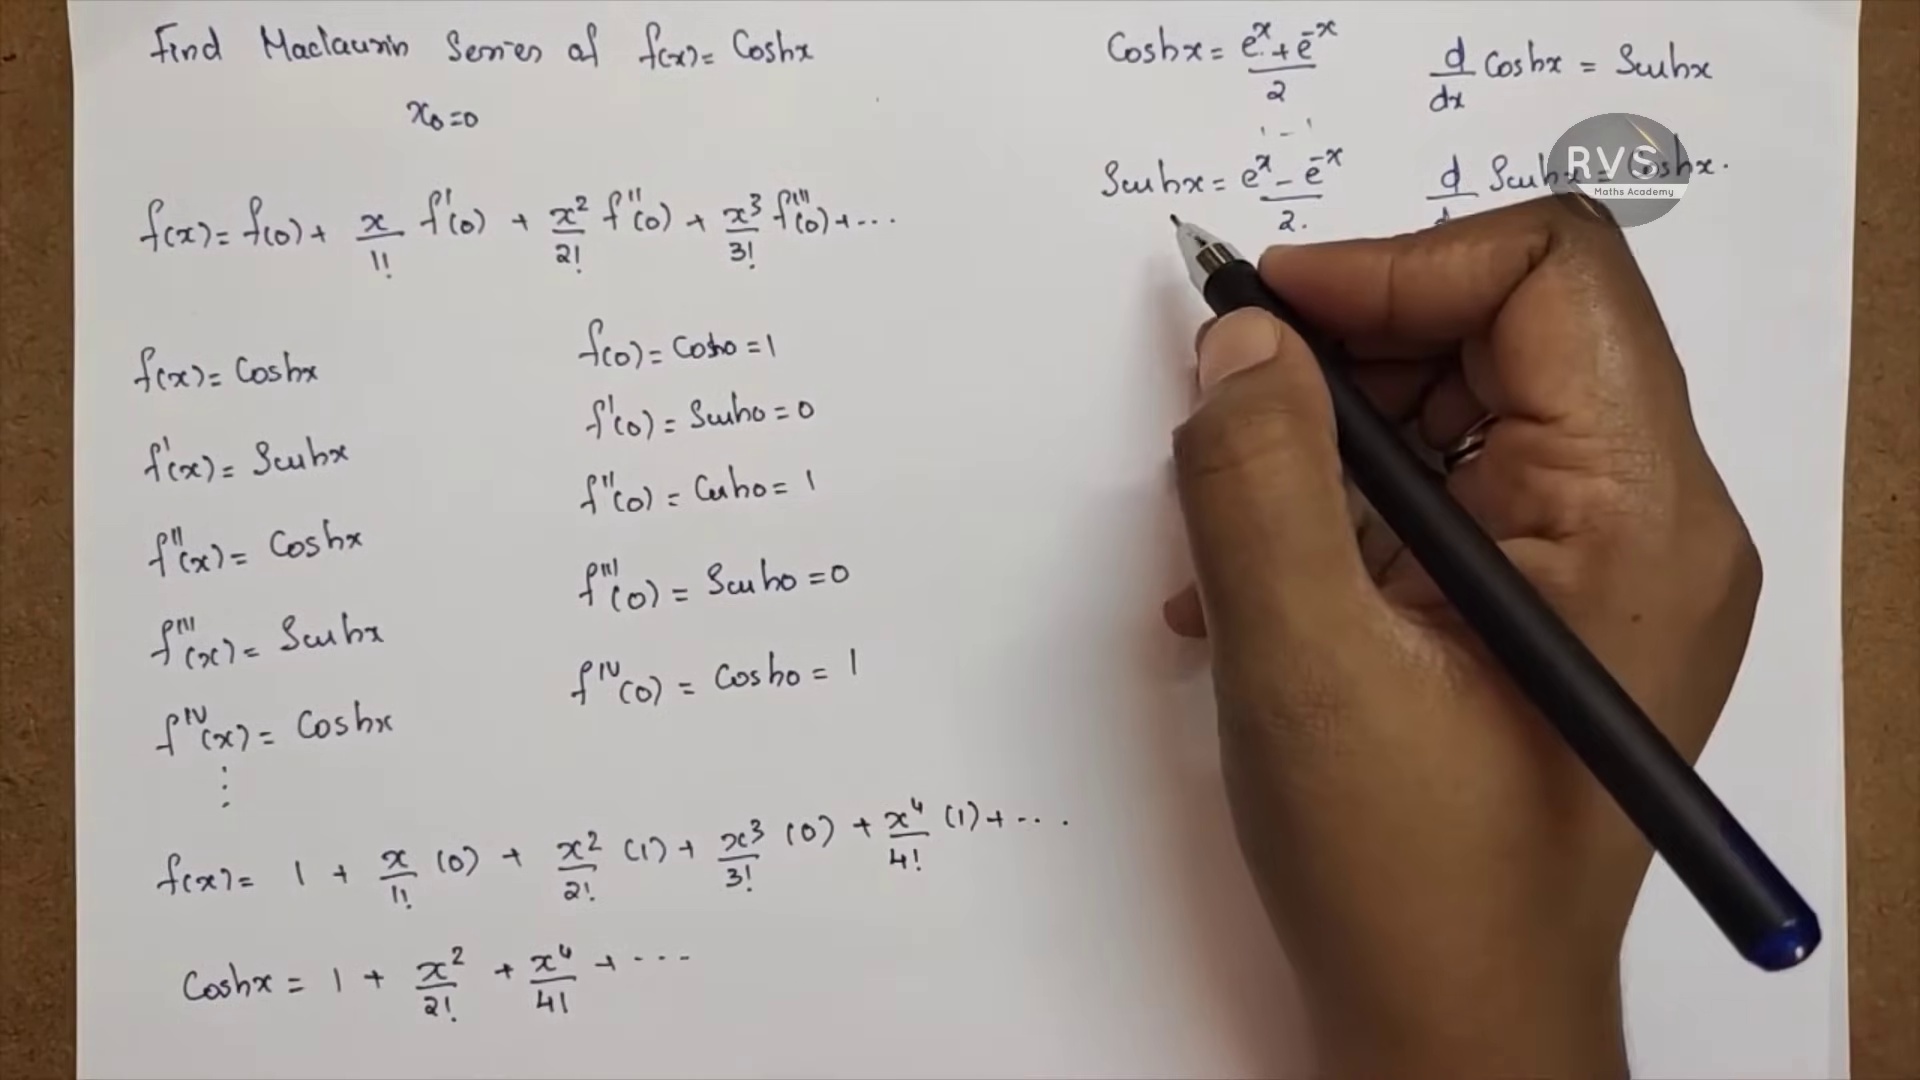 Find Maclaurin Series of f(x)= Coshx
x₀=0
f(x)= f(0)+ x/1! f'(0) + x²/2! f''(0) + x³/3! f'''(0)+...
f(x)= Coshx
f'(x)= Sinhx
f''(x)= Coshx
f'''(x)= Sinhx
f^IV(x)= Coshx
⋮
f(0)= Cosh0=1
f'(0)= Sinh0=0
f''(0)= Cosh0=1
f'''(0)= Sinh0=0
f^IV(0)= Cosh0=1
f(x)= 1 + x/1! (0) + x²/2! (1)+ x³/3! (0) + x⁴/4! (1)+...
Coshx = 1 + x²/2! + x⁴/4! + ...
Coshx = (eˣ + e⁻ˣ)/2
1 - 1
Sinhx = (eˣ - e⁻ˣ)/2.
d/dx Coshx = Sinhx
d Sinhx = Coshx.
RVS
Maths Academy